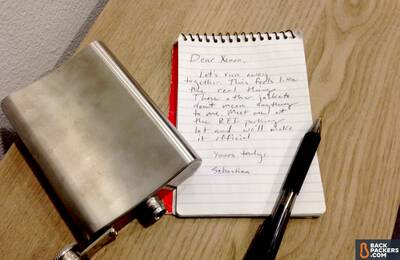 Dear Xenon,
Let's run away
together. This feels like
the real thing.
These other jackets
don't mean anything
to me. Meet me at
the REI parking
lot and we'll make
it official.
Yours truly,
Sebastian
BACK
PACKERS
.COM